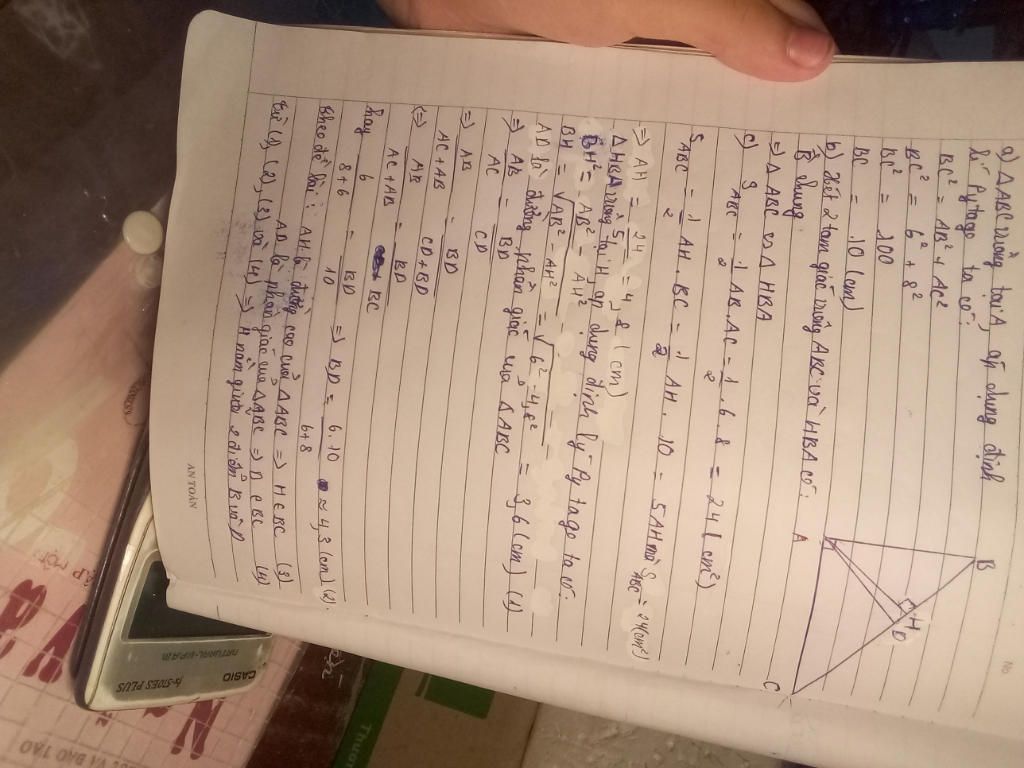 a) Δ ABC vuông tại A, áp dụng định
lí Pytago ta có:
BC² = AB² + AC²
BC² = 6² + 8²
BC² = 100
BC = 10 (cm)
B
H
D
A
C
b) Xét 2 tam giác vuông ABC và HBA có:
B̂ chung
=> Δ ABC ∽ Δ HBA
c) S ABC = 1/2 AB.AC = 1/2 . 6 . 8 = 24 (cm²)
S ABC = 1/2 AH . BC = 1/2 AH . 10 = 5AH mà S ABC = 24(cm²)
=> AH = 24/5 = 4,8 (cm)
Δ HBA vuông tại H, áp dụng định lý Pytago ta có:
BH² = AB² - AH²
BH = √AB² - AH² = √6² - 4,8² = 3,6 (cm) (1)
AD là đường phân giác của Δ ABC
=> AB/AC = BD/CD
=> AB/AC+AB = BD/CD+BD
(=) AB/AC+AB = BD/BC
hay 6/8+6 = BD/10 => BD = 6.10/6+8 ≈ 4,3 (cm) (2).
theo đề bài: AH là đường cao của Δ ABC => H ∈ BC (3)
AD là phân giác của Δ ABC => D ∈ BC (4)
từ (1), (2), (3) và (4) => H nằm giữa 2 điểm B và D
AN TOÀN
CASIO
fx-570ES PLUS
NATURAL-V.P.A.M.
VÀ ĐÀO TẠO